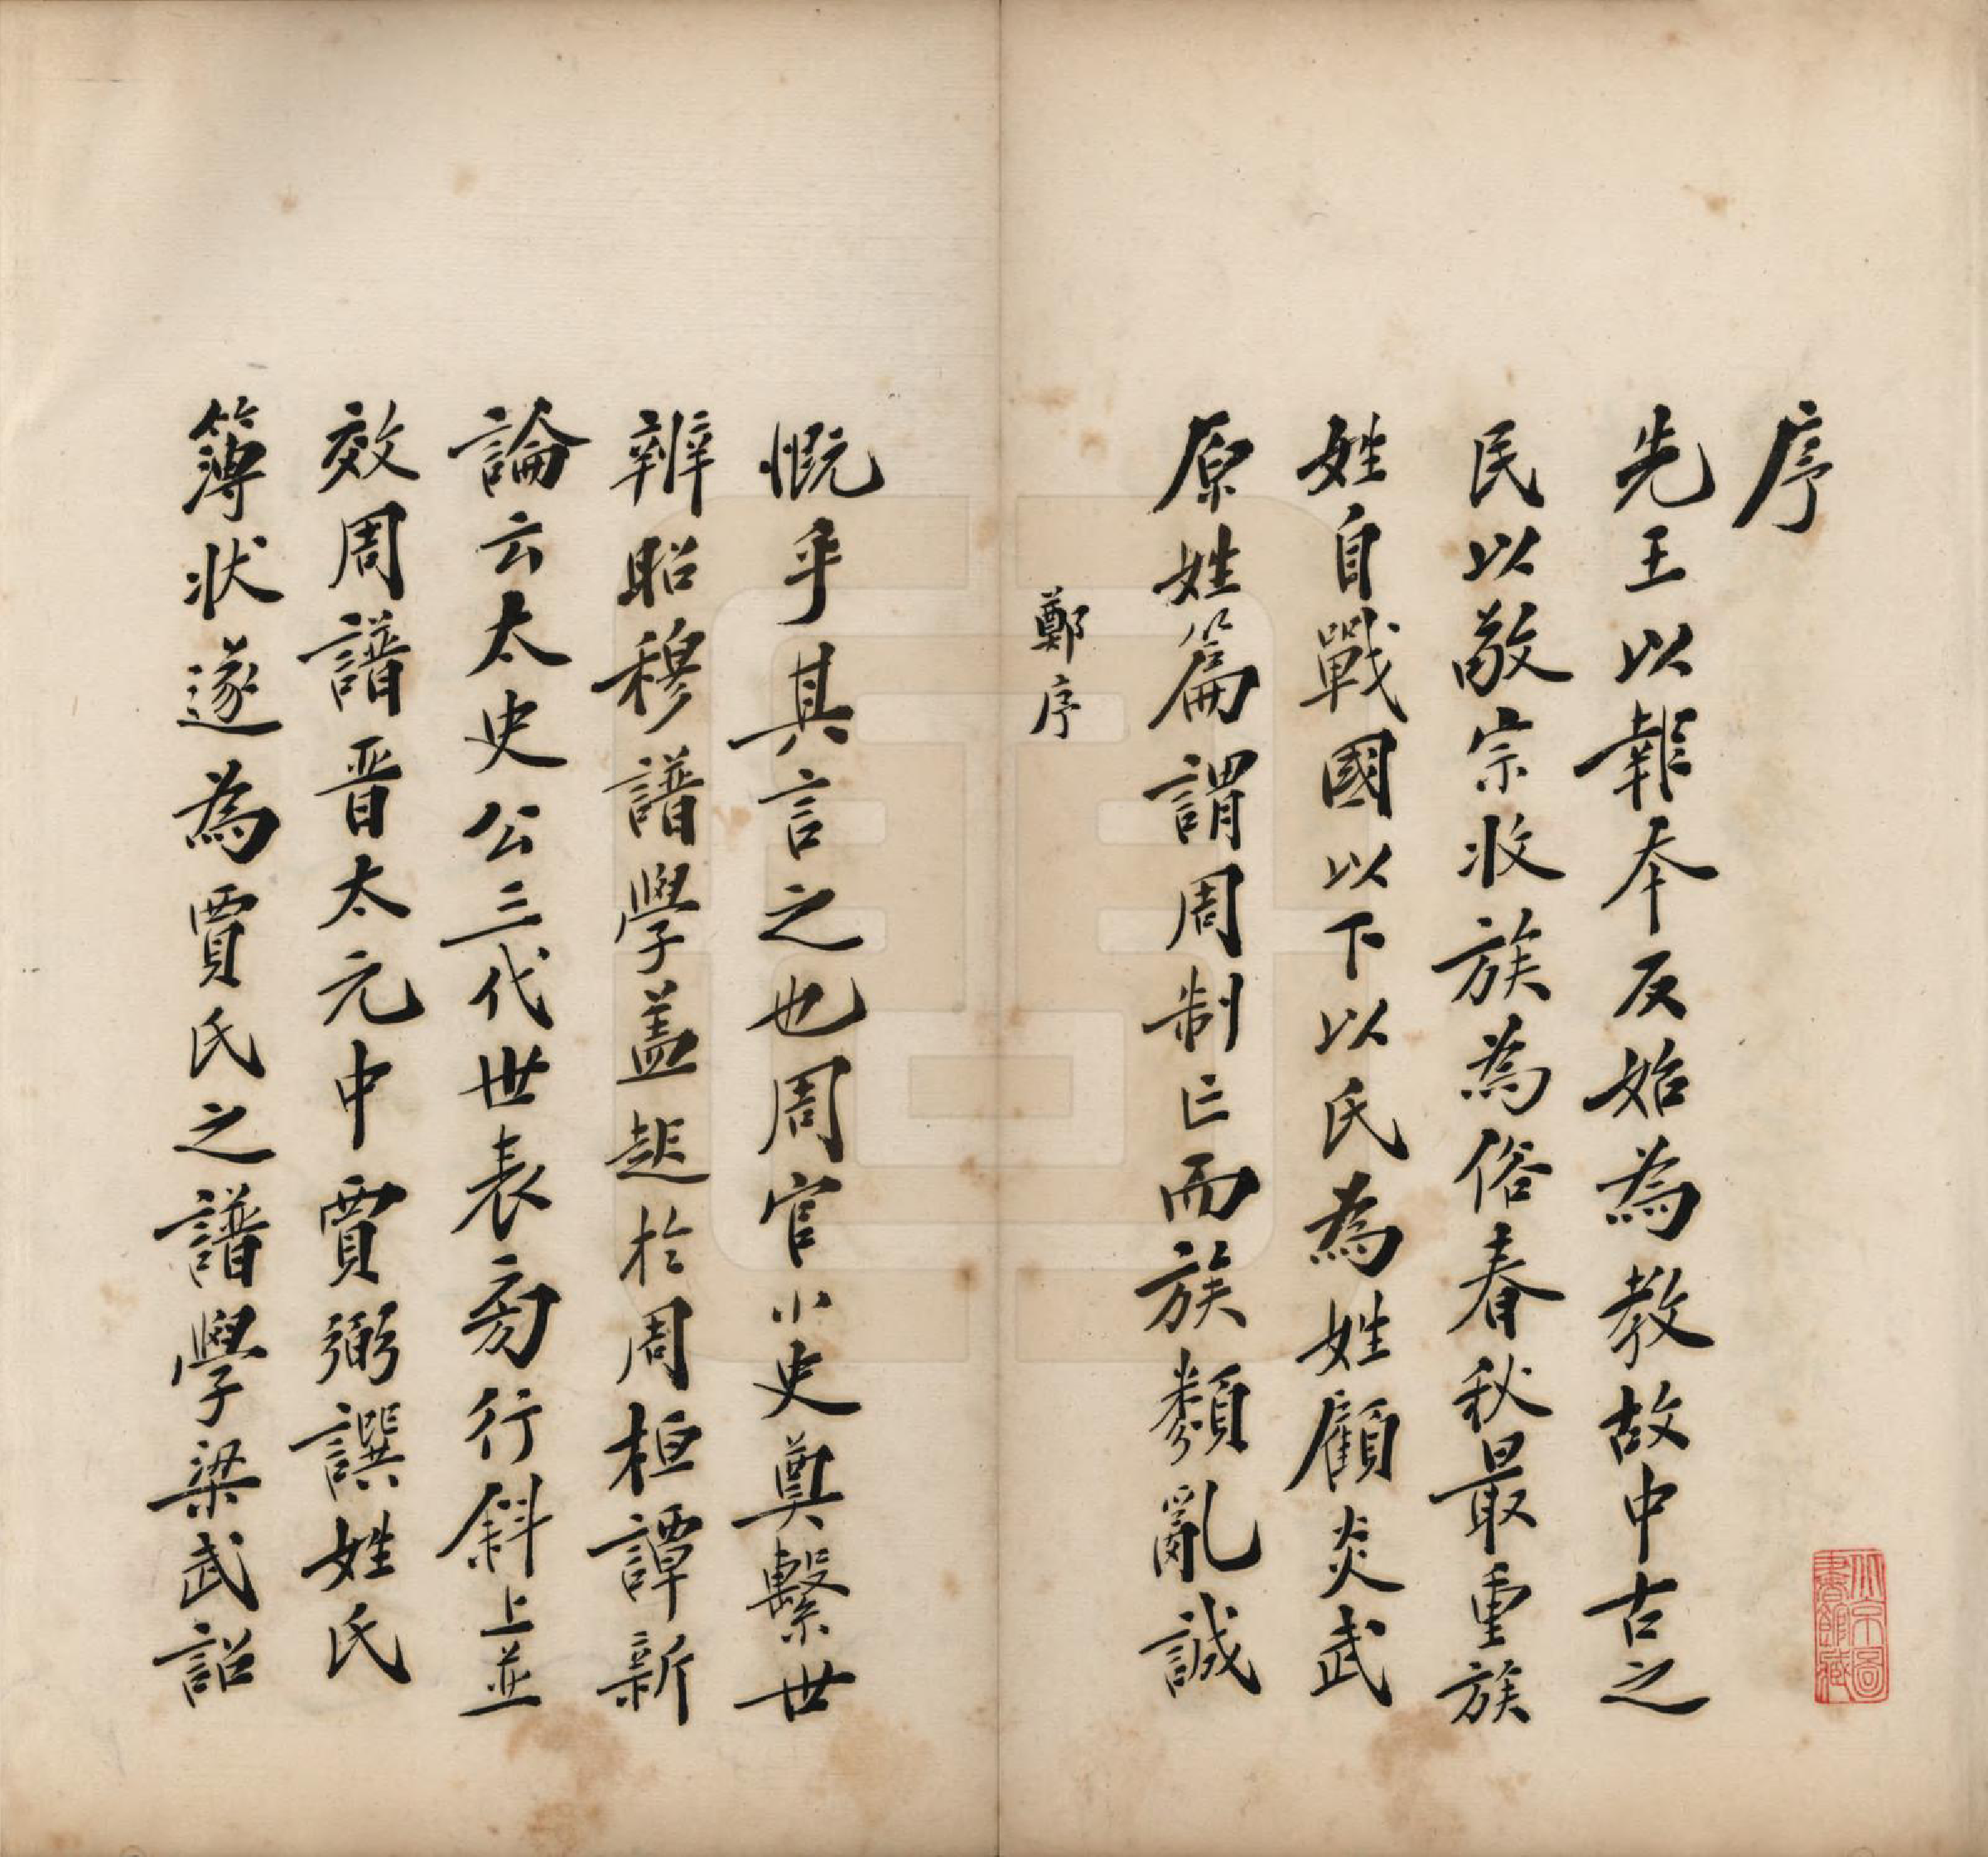 序
先王以報本反始為教故中古之
民以敬宗收族為俗春秋最重族
姓自戰國以下以氏為姓顧炎武
原姓篇謂周制亡而族類亂誠
鄭序
慨乎其言之也周官小史奠繫世
辨昭穆譜學盖起於周桓譚新
論云太史公三代世表旁行斜上並
效周譜晉太元中賈弼譔姓氏
簿狀遂為賈氏之譜學梁武詔
北京圖書館藏